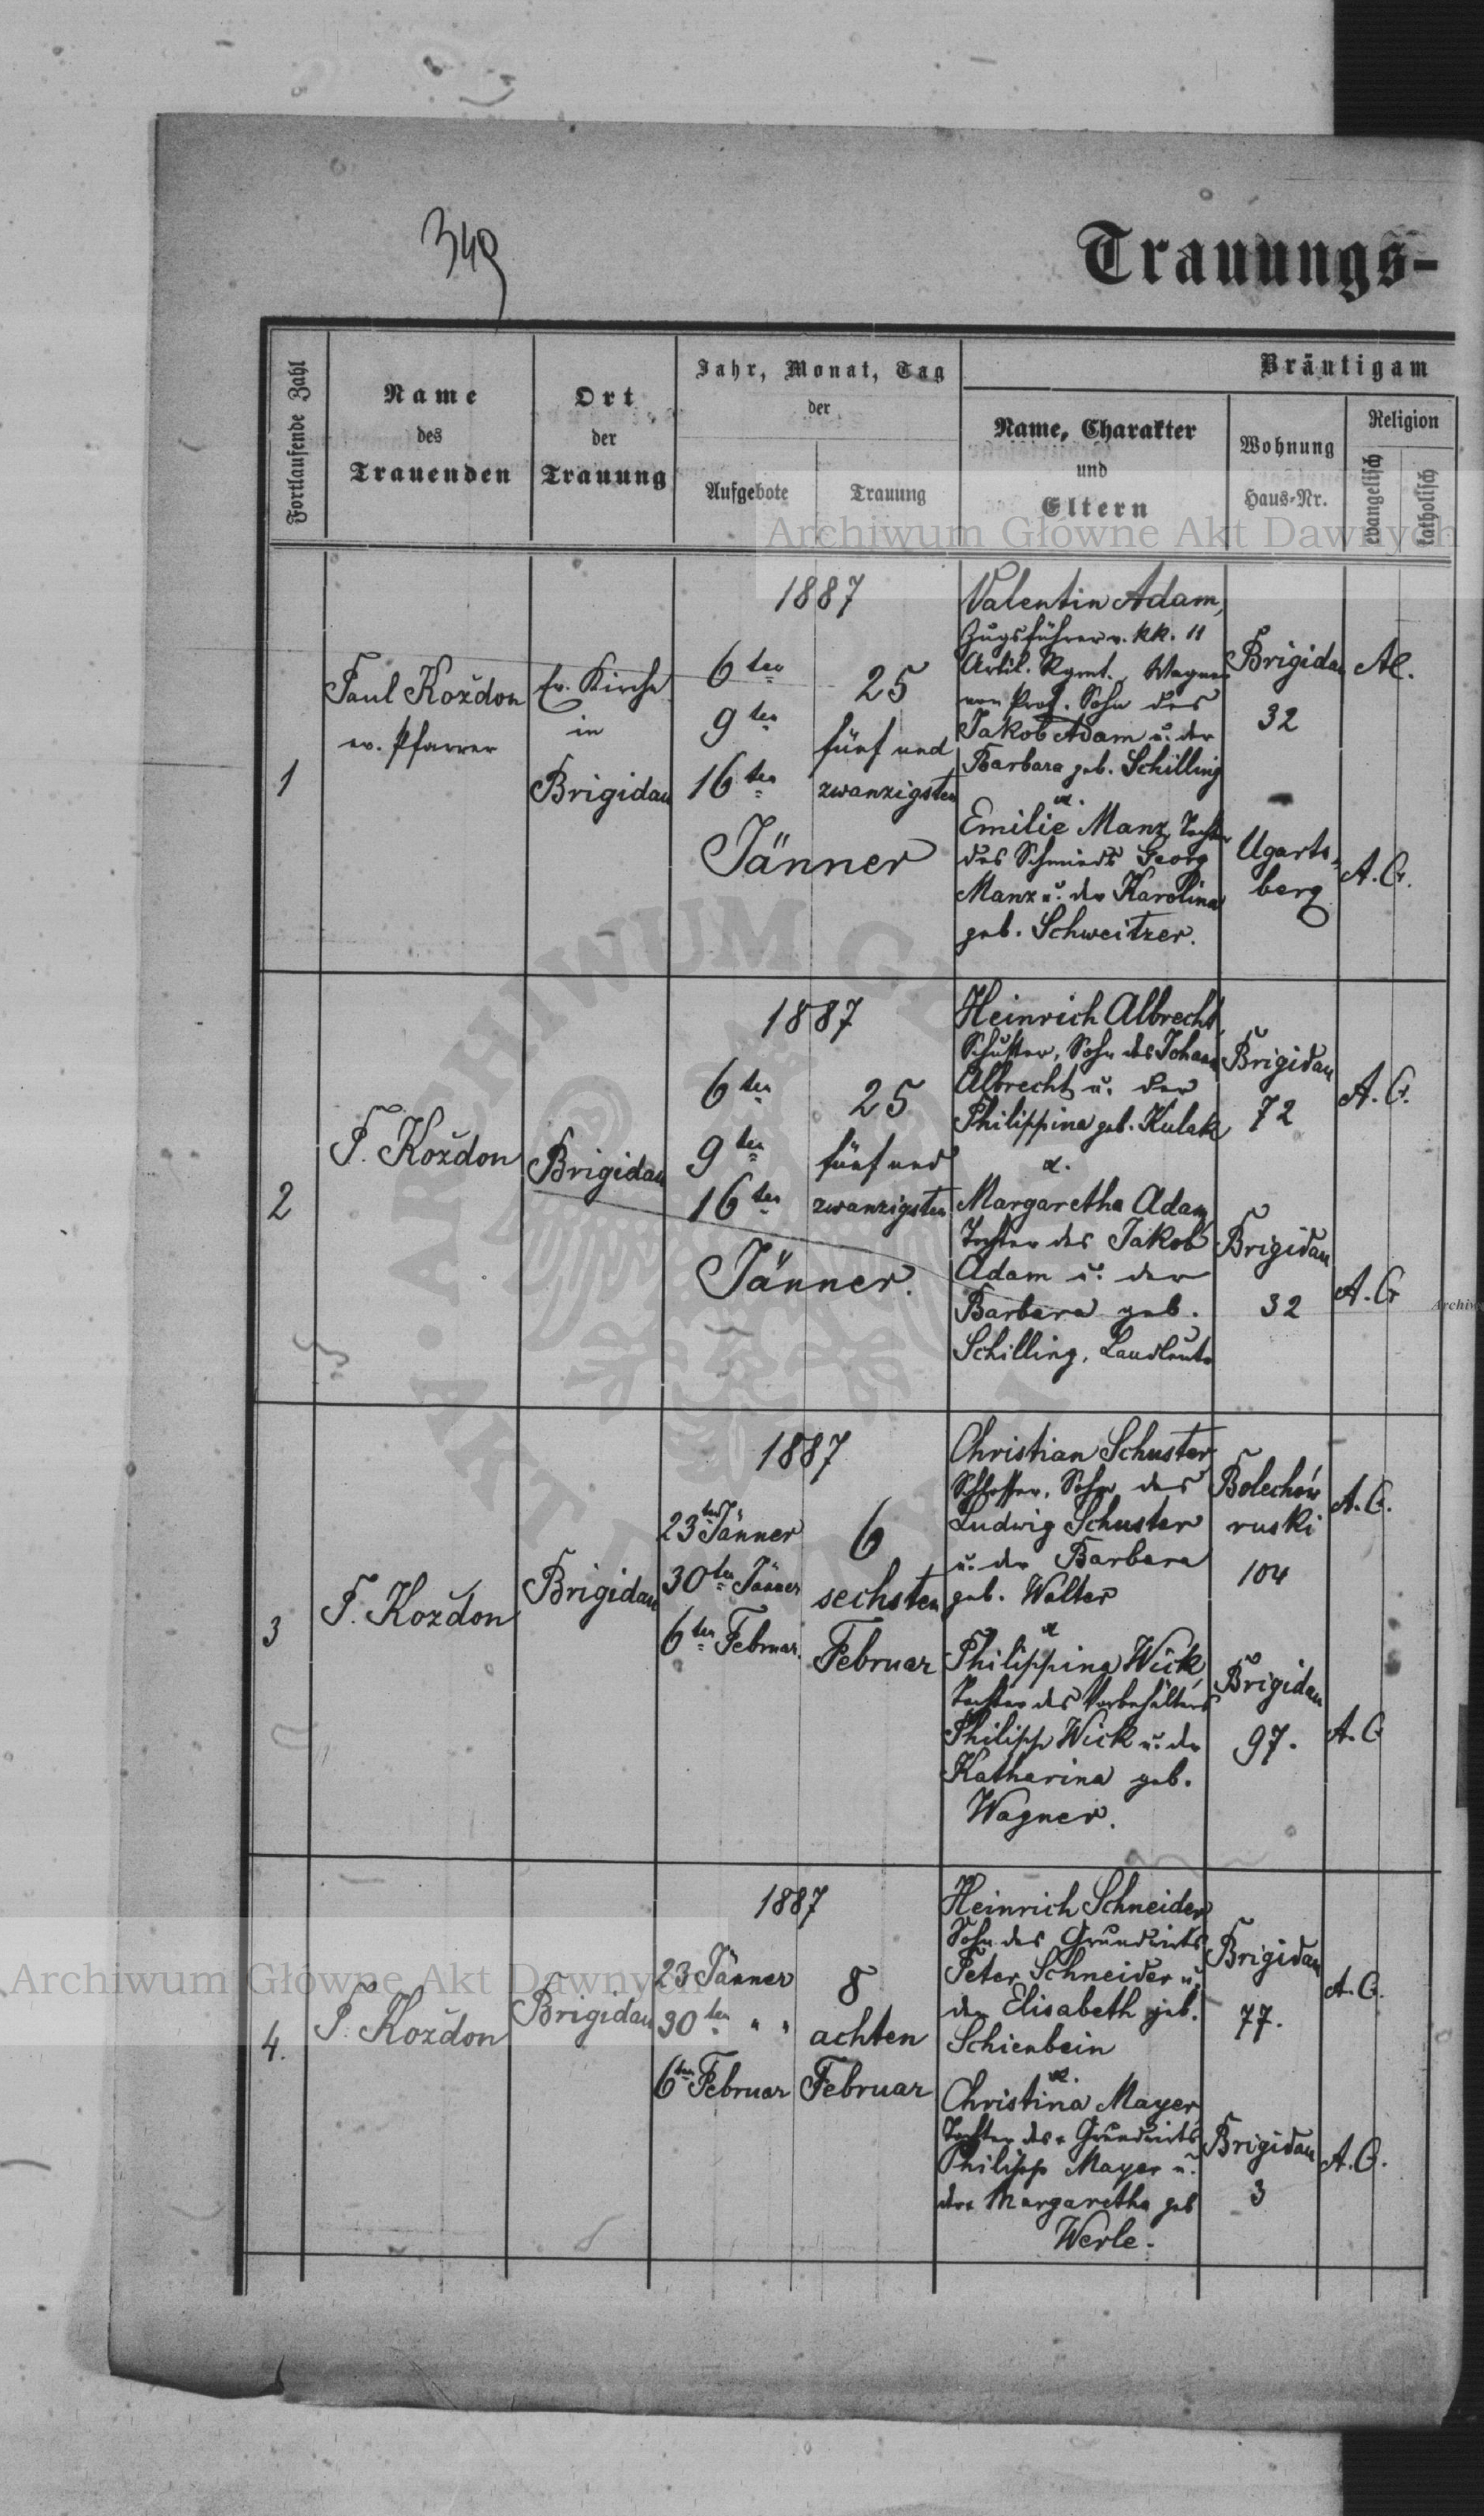 349
Trauungs-
Fortlaufende Zahl
Name
des
Trauenden
Ort
der
Trauung
Jahr, Monat, Tag
der
Aufgebote
Trauung
Bräutigam
Name, Charakter
und
Eltern
Wohnung
Haus-Nr.
Religion
evangelisch
katholisch
Archiwum Główne Akt Dawnych
1
Paul Koždon
ev. Pfarrer
Ev. Kirche
in
Brigidau
1887
6ten
9ten
16ten
Jänner
25
fünf und
zwanzigsten
Valentin Adam,
Zugsführer v. kk. 11
Artil. Rgmt., Wagner
von Prof. Sohn des
Jakob Adam u. der
Barbara geb. Schilling
u.
Emilie Manz, Tochter
des Schmieds Georg
Manz u. der Karolina
geb. Schweitzer.
Brigidau
32
Ugarts-
berg
A.C.
A.C.
2
P. Koždon
Brigidau
1887
6ten
9ten
16ten
Jänner.
25
fünf und
zwanzigsten
Heinrich Albrecht,
Schuster, Sohn des Johann
Albrecht u. der
Philippina geb. Kulak
u.
Margaretha Adam,
Tochter des Jakob
Adam u. der
Barbara geb.
Schilling, Landleute
Brigidau
72
Brigidau
32
A.C.
A.C
3
P. Koždon
Brigidau
1887
23ten Jänner
30ten Jänner
6ten Februar.
6
sechsten
Februar
Christian Schuster
Schlosser, Sohn des
Ludwig Schuster
u. der Barbara
geb. Walter
u
Philippina Wick,
Tochter des Vorbehälters
Philipp Wick u. der
Katharina geb.
Wagner.
Bolechów
ruski
104
Brigidau
97.
A.C.
A.C
4.
P. Koždon
Brigidau
1887
23 Jänner
30ten " "
6ten Februar
8
achten
Februar
Heinrich Schneider
Sohn des Grundwirts
Peter Schneider u.
der Elisabeth geb.
Schienbein
u.
Christina Mayer
Tochter des Grundwirts
Philipp Mayer u.
der Margaretha geb
Werle.
Brigidau
77.
Brigidau
3
A.C.
A.C.
Archiwum Główne Akt Dawnych